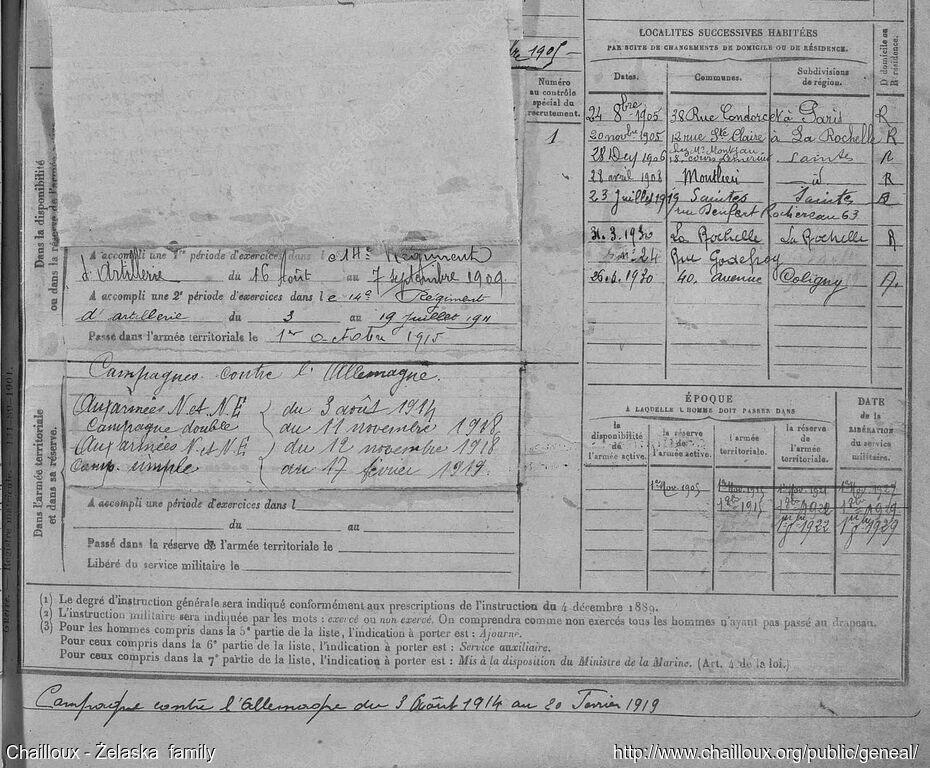 bre 1905
Numéro
au contrôle
spécial du
recrutement.
1
Dans la disponibilité
ou dans la réserve de l'armée
A accompli une 1re période d'exercices dans le 14e Régiment
d'Artillerie du 16 Août au 7 septembre 1909.
A accompli une 2e période d'exercices dans le 14e Régiment
d'artillerie du 3 au 19 juillet 1911
Passé dans l'armée territoriale le 1er octobre 1915
Dans l'armée territoriale
et dans sa réserve.
Campagnes contre l'Allemagne.
Aux armées N et N.E du 3 août 1914
Campagne double au 11 novembre 1918
Aux armées N et N.E du 12 novembre 1918
Camp. simple au 17 février 1919
A accompli une période d'exercices dans l
du au
Passé dans la réserve de l'armée territoriale le
Libéré du service militaire le
LOCALITÉS SUCCESSIVES HABITÉES
PAR SUITE DE CHANGEMENTS DE DOMICILE OU DE RÉSIDENCE.
Dates. Communes. Subdivisions de région. D domicile ou R résidence.
24 8bre 1905 38 Rue Condorcet à Paris R
20 novbre 1905 12 rue Ste Claire à La Rochelle R
28 1906 18 cours Saintes R
28 avril 1908 Montlieu id R
23 Juillet 1919 Saintes Sainte
rue Denfert Rochereau 63
31.3.1930 La Rochelle La Rochelle R
24 Rue Godefroy
1930 40. avenue Coligny
ÉPOQUE
À LAQUELLE L'HOMME DOIT PASSER DANS
la disponibilité de l'armée active.
la réserve de l'armée active.
l'armée territoriale.
la réserve de l'armée territoriale.
DATE
de la
LIBÉRATION
du service
militaire.
1er Nov. 1905 1er Nov. 1915 1er Nov. 1921 1er Nov. 1927
1er 8bre 1915
1922 1929
(1) Le degré d'instruction générale sera indiqué conformément aux prescriptions de l'instruction du 4 décembre 1889.
(2) L'instruction militaire sera indiquée par les mots : exercé ou non exercé. On comprendra comme non exercés tous les hommes n'ayant pas passé au drapeau.
(3) Pour les hommes compris dans la 5e partie de la liste, l'indication à porter est : Ajourné.
Pour ceux compris dans la 6e partie de la liste, l'indication à porter est : Service auxiliaire.
Pour ceux compris dans la 7e partie de la liste, l'indication à porter est : Mis à la disposition du Ministre de la Marine. (Art. 4 de la loi.)
Campagne contre l'Allemagne du 3 Août 1914 au 20 Février 1919
Chailloux - Żelaska family
http://www.chailloux.org/public/geneal/